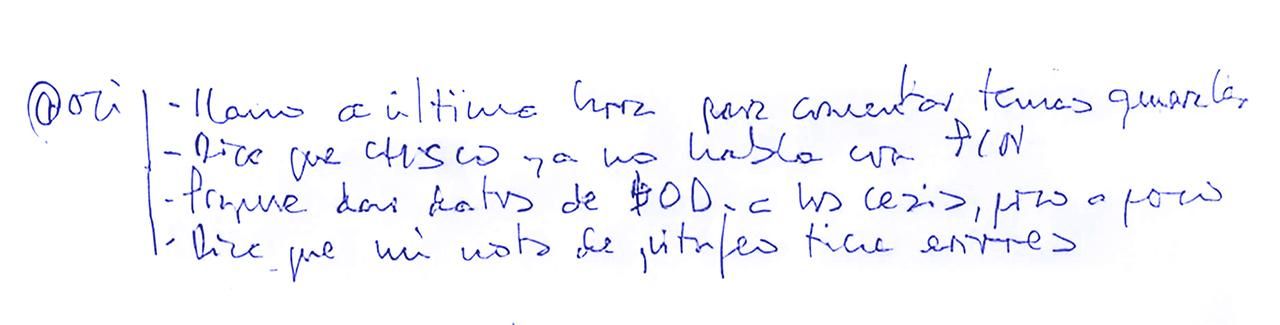 @ori - llamo a última hora para comentar temas
- Dice que CHISCO ya no habla con PCN
- Propone dar datos de a los , poco a poco
- Dice que mi nota de tiene errores